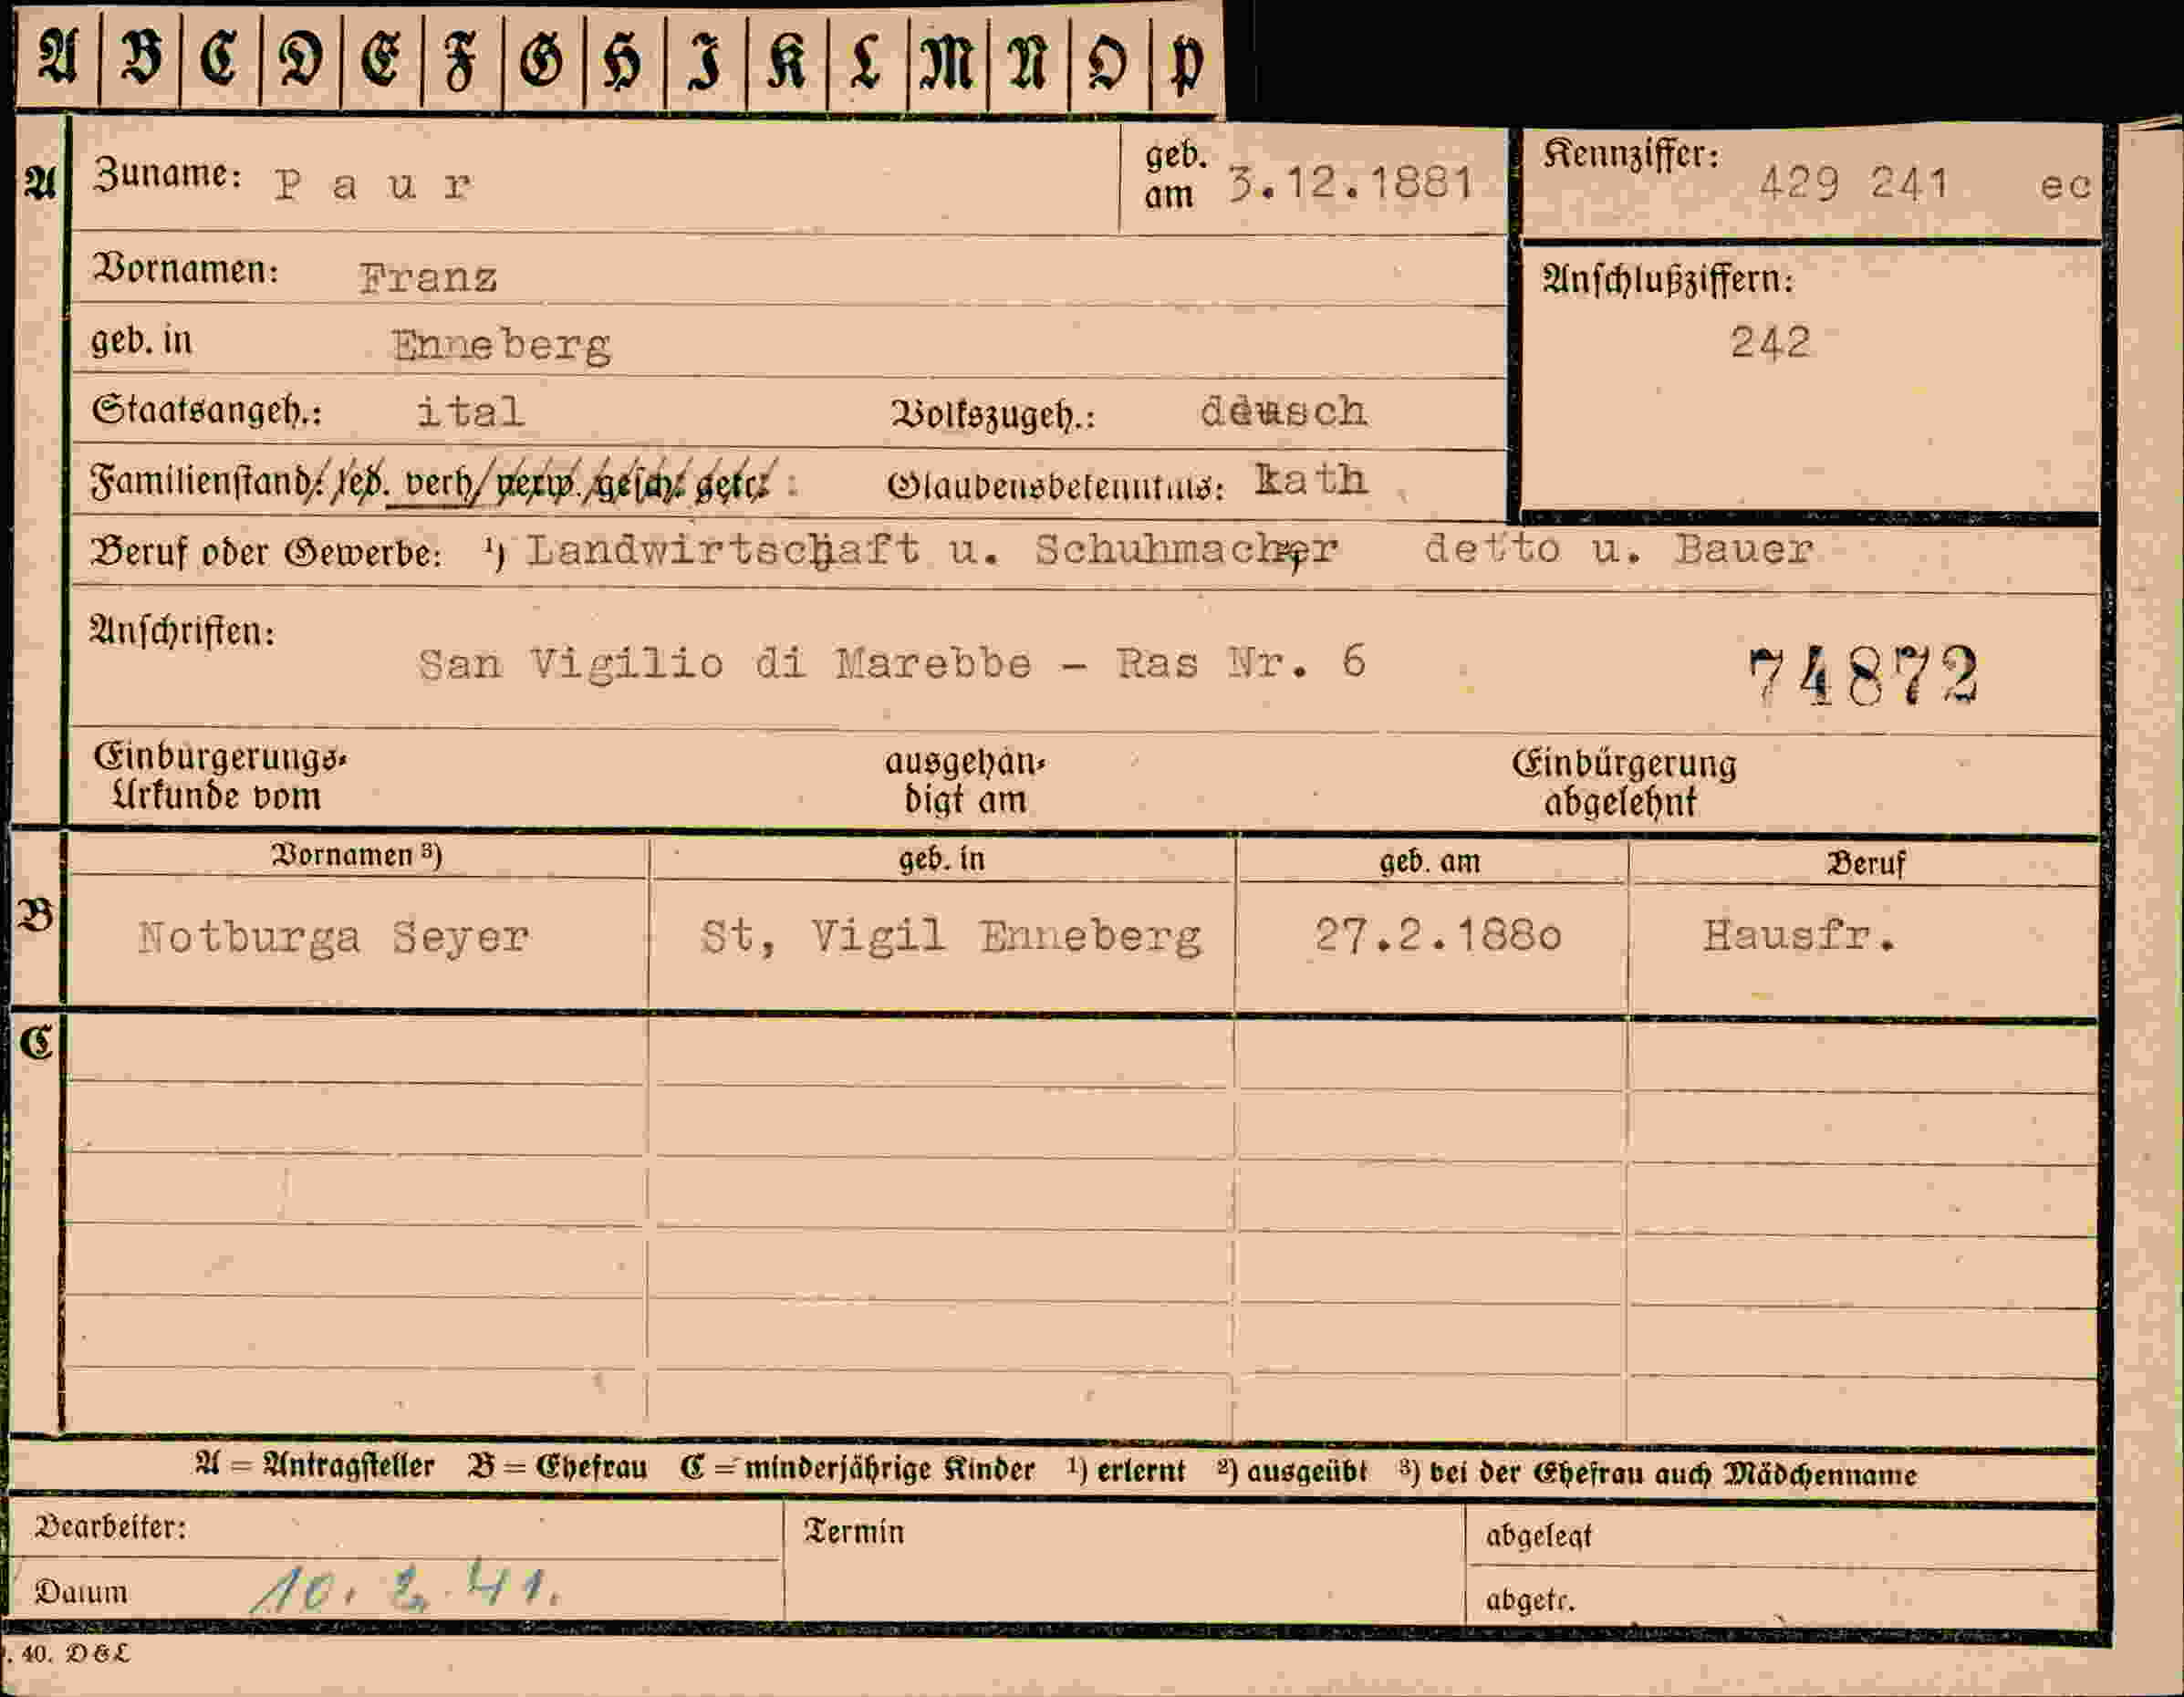 A B C D E F G H I K L M N O P
A Zuname: Paur geb. am 3.12.1881 Kennziffer: 429 241 ec
Vornamen: Franz Anschlußziffern:
geb. in Enneberg 242
Staatsangeh.: ital Volkszugeh.: deusch
Familienstand: led. verh. verw. gesch. getr. : Glaubensbekenntnis: kath
Beruf oder Gewerbe: ¹) Landwirtschaft u. Schuhmacher detto u. Bauer
Anschriften:
San Vigilio di Marebbe - Ras Nr. 6 74872
Einbürgerungs- ausgehän- Einbürgerung
Urkunde vom digt am abgelehnt
Vornamen ³) geb. in geb. am Beruf
B Notburga Seyer St, Vigil Enneberg 27.2.188o Hausfr.
C
A = Antragsteller B = Ehefrau C = minderjährige Kinder ¹) erlernt ²) ausgeübt ³) bei der Ehefrau auch Mädchenname
Bearbeiter: Termin abgelegt
Datum 10. 2. 41. abgetr.
. 40. D&L